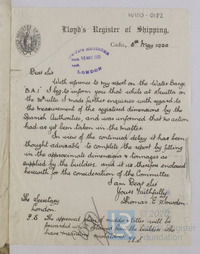 W1110-0182
Lloyd's Register of Shipping,
Cadiz, 8th May 1920
LONDON
Dear Sir
With reference to my report on the Water Barge
"B.A.1" I beg to inform you that while at Seville on
the 30th ulto I made further enquiries with regard to
the measurement of the registered dimensions by the
Spanish Authorities, and was informed that no action
had as yet been taken in the matter.
In view of the continued delay it has been
thought advisable to complete the report by filling
in the approximate dimensions & tonnages as
supplied by the builders and it is therefore enclosed
herewith for the consideration of the Committee
I am Dear Sir
Yours faithfully
Thomas E.
The Secretary
London.
P.S. The approval letter will be
forwarded the builders who
have